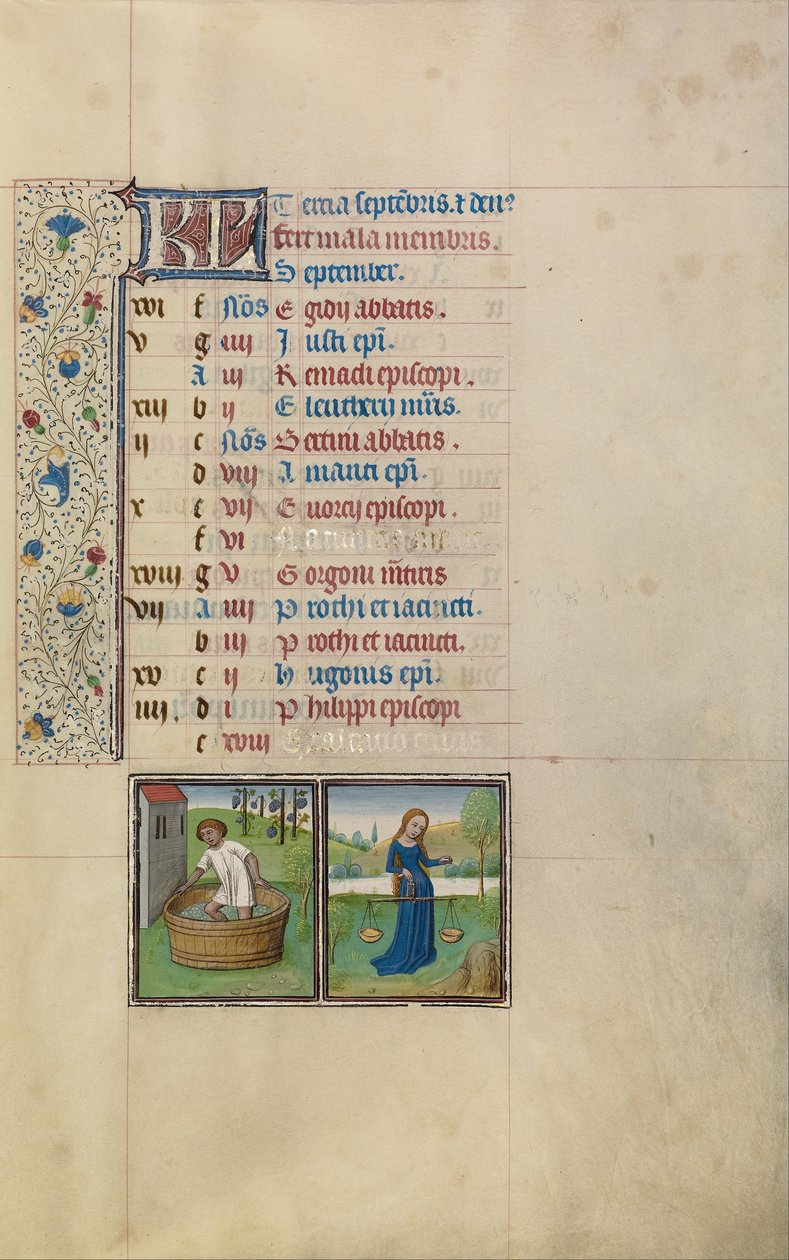 KL Tercia septēbris. & den⁹
fert mala membris.
September.
xvi f Nōs Egidij abbatis.
v g iiij Justi epī.
A iij Remacli episcopi.
xiij b ij Eleutherij mr̄is.
ij c Nōs Bertini abbatis.
d viij Amanti epī.
x e vij Euorcij episcopi.
f vi
xviij g v Gorgoni m̄tiris
vij A iiij Prothi et iacincti.
b iij Prothi et iacincti.
xv c ij Hugonis epī.
iiij. d i Philippi episcopi
e xviij Exaltatio